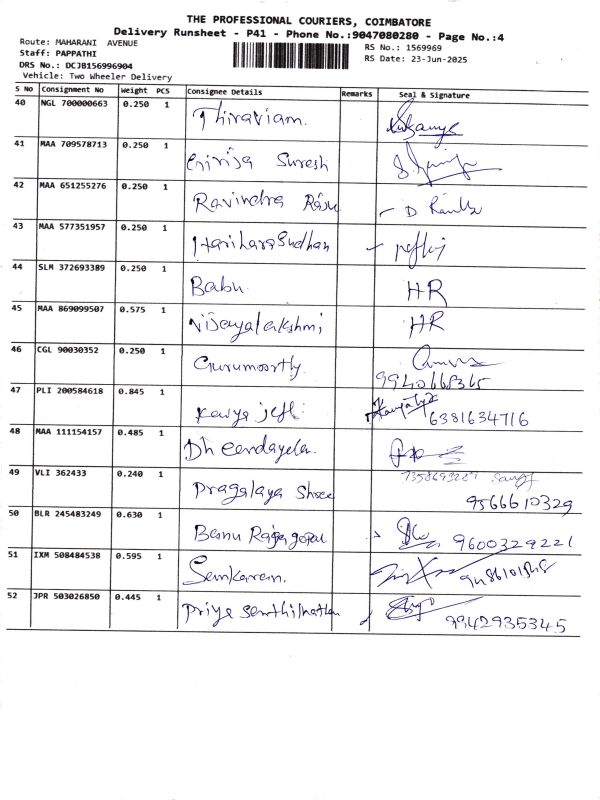 THE PROFESSIONAL COURIERS, COIMBATORE
Delivery Runsheet - P41 - Phone No.:9047080280 - Page No.:4
Route: MAHARANI AVENUE
Staff: PAPPATHI
DRS No.: DCJB156996904
Vehicle: Two Wheeler Delivery
RS No.: 1569969
RS Date: 23-Jun-2025
S No Consignment No Weight PCS Consignee Details Remarks Seal & Signature
40 NGL 700000663 0.250 1 Thiraviam.
41 MAA 709578713 0.250 1 Girija Suresh
42 MAA 651255276 0.250 1 Ravindra Raju
43 MAA 577351957 0.250 1 Harihara Sudhan
44 SLM 372693389 0.250 1 Babu HR
45 MAA 869099507 0.575 1 Vijayalakshmi HR
46 CGL 90030352 0.250 1 Gurumoorthy.
47 PLI 200584618 0.845 1 Kavya 6381634716
48 MAA 111154157 0.485 1
49 VLI 362433 0.240 1 Pragalaya Shree 9566610329
50 BLR 245483249 0.630 1 Banu Rajagopal 9600329221
51 IXM 508484538 0.595 1
52 JPR 503026850 0.445 1 Priya Senthilnathan 9942935345